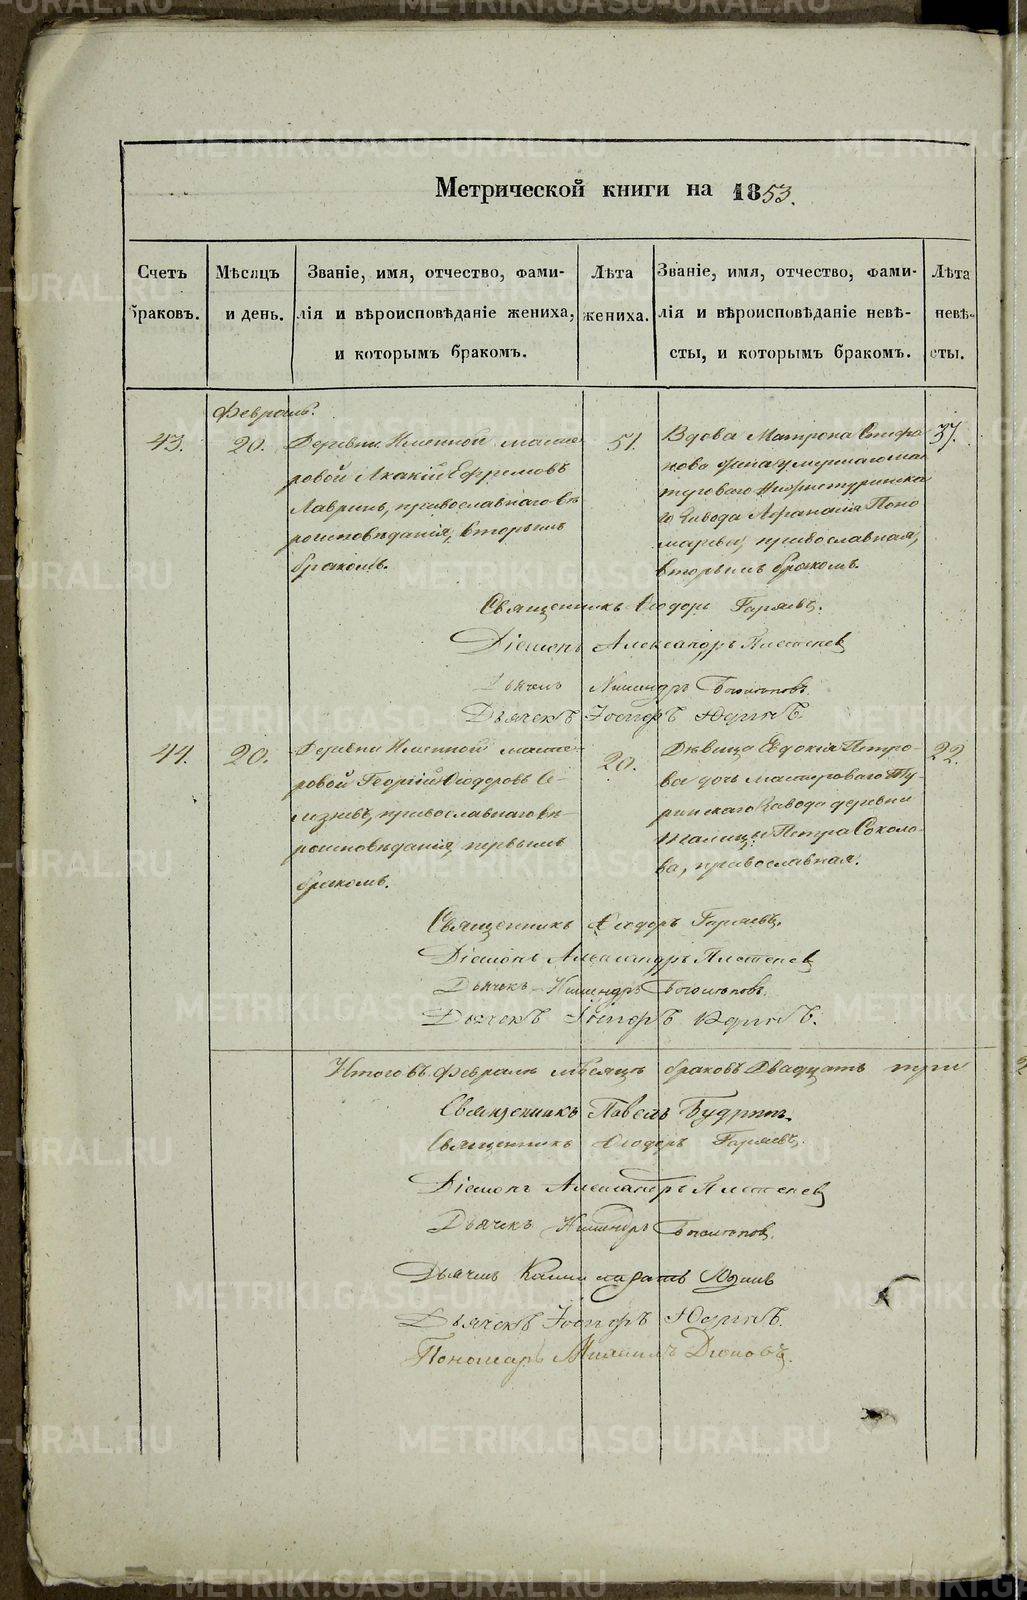 Метрической книги на 1853.
Счетъ браковъ.
Мѣсяцъ и день.
Званіе, имя, отчество, фами-
лія и вѣроисповѣданіе жениха,
и которымъ бракомъ.
Лѣта жениха.
Званіе, имя, отчество, фами-
лія и вѣроисповѣданіе невѣ-
сты, и которымъ бракомъ.
Лѣта невѣ-
сты.
Февраль.
43.
20.
Деревни Именной масте-
ровой Акакій Ефремовъ
Лавринъ, православнаго вѣ
роисповѣданія, вторымъ
бракомъ.
51.
Вдова Матрона Стефа
нова жена умершаго мас
тероваго Нижнетуринска
го Завода Афанасія Поно
марева, православная,
вторымъ бракомъ.
37.
Священникъ Ѳеодоръ Гаряевъ.
Діаконъ Александръ Плотенев
Дьячекъ Никандръ
Дьячекъ
44.
20.
Деревни Именной масте-
ровой Георгій Ѳеодоровъ Се-
лезневъ, православнаго вѣ-
роисповѣданія, первымъ
бракомъ.
20.
Дѣвица Евдокія Петро-
ва дочь мастероваго Ту-
ринскаго Завода деревни
Талицы Петра Соколо-
ва, православная.
22.
Священникъ Ѳеодоръ Гаряевъ.
Діаконъ Александръ Плотенев
Дьячекъ Никандръ
Дьячекъ
Итого въ Февралѣ мѣсяцѣ браковъ двадцать три
Священникъ Павелъ Будринъ.
Священникъ Ѳеодоръ Гаряевъ.
Діаконъ Александръ Плотенев
Дьячекъ Никандръ
Дьячекъ
Дьячекъ
Пономарь Михаилъ
METRIKI.GASO-URAL.RU